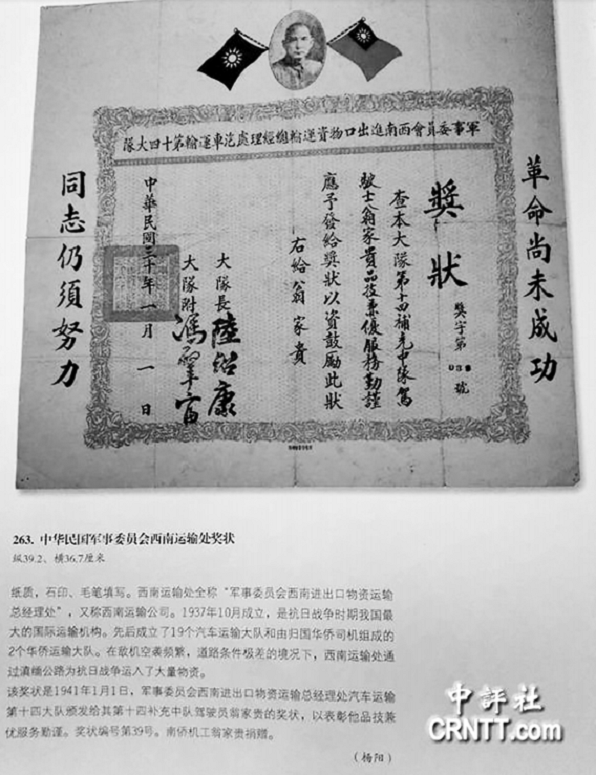 軍事委員會西南進出口物資運輸總經理處汽車運輸第十四大隊
革命尚未成功
獎狀
獎字第039號
查本大隊第十四補充中隊駕
駛士翁家貴品技兼優服務勤謹
應予發給獎狀以資鼓勵此狀
右給翁家貴
大隊長 陸紹康
大隊附 馮
中華民國三十年一月一日
同志仍須努力
263. 中华民国军事委员会西南运输处奖状
纵39.2、横36.7厘米
纸质，石印、毛笔填写。西南运输处全称“军事委员会西南进出口物资运输
总经理处”，又称西南运输公司。1937年10月成立，是抗日战争时期我国最
大的国际运输机构。先后成立了19个汽车运输大队和由归国华侨司机组成的
2个华侨运输大队。在敌机空袭频繁，道路条件极差的境况下，西南运输处通
过滇缅公路为抗日战争运入了大量物资。
该奖状是1941年1月1日，军事委员会西南进出口物资运输总经理处汽车运输
第十四大队颁发给其第十四补充中队驾驶员翁家贵的奖状，以表彰他品技兼
优服务勤谨。奖状编号第39号。南侨机工翁家贵捐赠。
（杨阳）
中評社
CRNTT.com